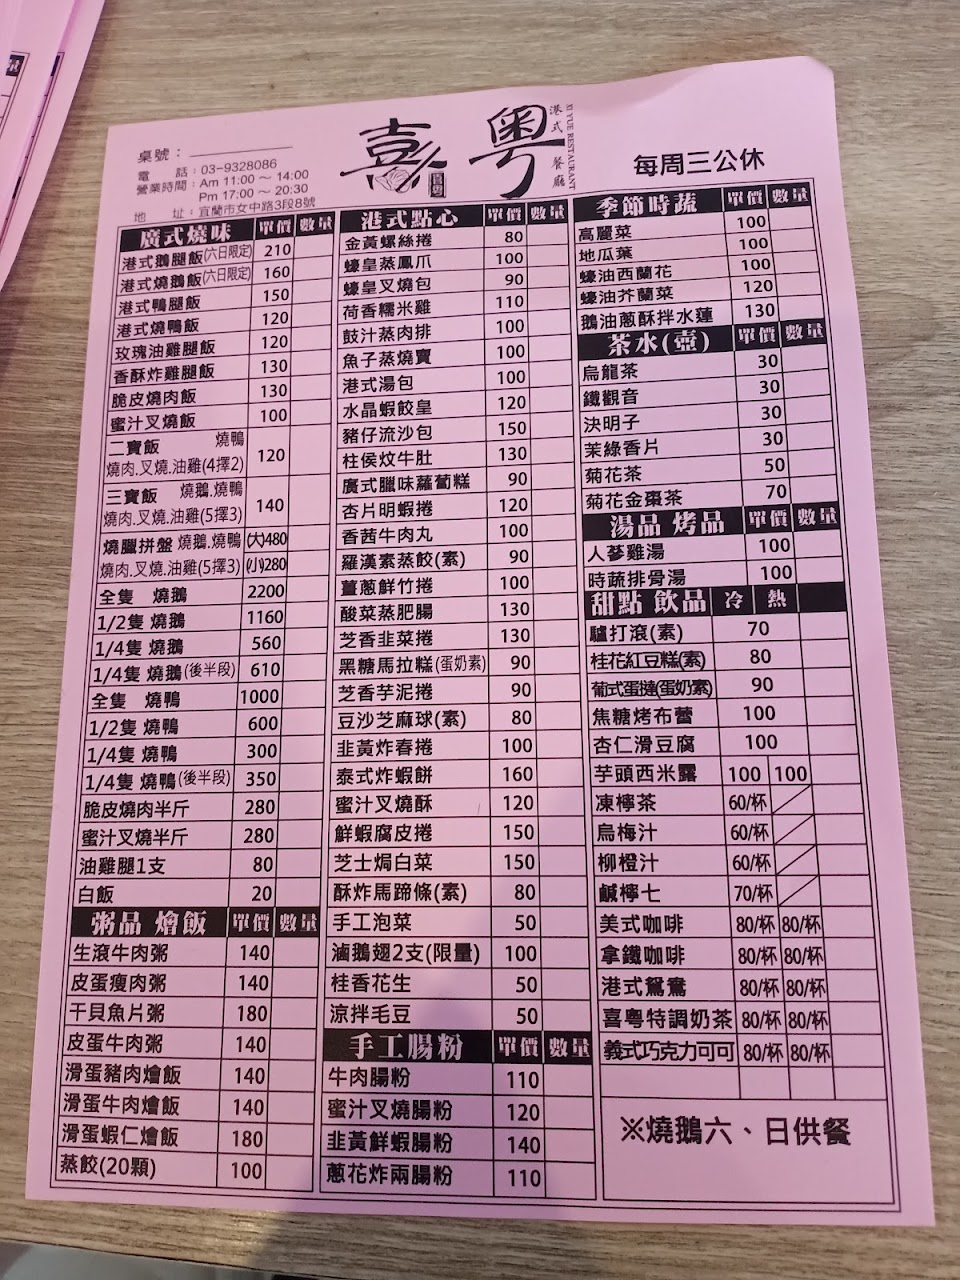 桌號：
電 話：03-9328086
營業時間：Am 11:00～14:00
Pm 17:00～20:30
地 址：宜蘭市女中路3段8號
喜粵
港式餐廳
XI YUE RESTAURANT
每周三公休
廣式燒味 單價 數量
港式鵝腿飯(六日限定) 210
港式燒鵝飯(六日限定) 160
港式鴨腿飯 150
港式燒鴨飯 120
玫瑰油雞腿飯 120
香酥炸雞腿飯 130
脆皮燒肉飯 130
蜜汁叉燒飯 100
二寶飯 燒鴨
燒肉.叉燒.油雞(4擇2) 120
三寶飯 燒鵝.燒鴨
燒肉.叉燒.油雞(5擇3) 140
燒臘拼盤 燒鵝.燒鴨 (大)480
燒肉.叉燒.油雞(5擇3) (小)280
全隻 燒鵝 2200
1/2隻 燒鵝 1160
1/4隻 燒鵝 560
1/4隻 燒鵝(後半段) 610
全隻 燒鴨 1000
1/2隻 燒鴨 600
1/4隻 燒鴨 300
1/4隻 燒鴨(後半段) 350
脆皮燒肉半斤 280
蜜汁叉燒半斤 280
油雞腿1支 80
白飯 20
粥品 燴飯 單價 數量
生滾牛肉粥 140
皮蛋瘦肉粥 140
干貝魚片粥 180
皮蛋牛肉粥 140
滑蛋豬肉燴飯 140
滑蛋牛肉燴飯 140
滑蛋蝦仁燴飯 180
蒸餃(20顆) 100
港式點心 單價 數量
金黃螺絲捲 80
蠔皇蒸鳳爪 100
蠔皇叉燒包 90
荷香糯米雞 110
鼓汁蒸肉排 100
魚子蒸燒賣 100
港式湯包 100
水晶蝦餃皇 120
豬仔流沙包 150
柱侯炆牛肚 130
廣式臘味蘿蔔糕 90
杏片明蝦捲 120
香茜牛肉丸 100
羅漢素蒸餃(素) 90
薑蔥鮮竹捲 100
酸菜蒸肥腸 130
芝香韭菜捲 130
黑糖馬拉糕(蛋奶素) 90
芝香芋泥捲 90
豆沙芝麻球(素) 80
韭黃炸春捲 100
泰式炸蝦餅 160
蜜汁叉燒酥 120
鮮蝦腐皮捲 150
芝士焗白菜 150
酥炸馬蹄條(素) 80
手工泡菜 50
滷鵝翅2支(限量) 100
桂香花生 50
涼拌毛豆 50
手工腸粉 單價 數量
牛肉腸粉 110
蜜汁叉燒腸粉 120
韭黃鮮蝦腸粉 140
蔥花炸兩腸粉 110
季節時蔬 單價 數量
高麗菜 100
地瓜葉 100
蠔油西蘭花 100
蠔油芥蘭菜 120
鵝油蔥酥拌水蓮 130
茶水(壺) 單價 數量
烏龍茶 30
鐵觀音 30
決明子 30
茉綠香片 30
菊花茶 50
菊花金棗茶 70
湯品 烤品 單價 數量
人蔘雞湯 100
時蔬排骨湯 100
甜點 飲品 冷 熱
驢打滾(素) 70
桂花紅豆糕(素) 80
葡式蛋撻(蛋奶素) 90
焦糖烤布蕾 100
杏仁滑豆腐 100
芋頭西米露 100 100
凍檸茶 60/杯
烏梅汁 60/杯
柳橙汁 60/杯
鹹檸七 70/杯
美式咖啡 80/杯 80/杯
拿鐵咖啡 80/杯 80/杯
港式鴛鴦 80/杯 80/杯
喜粵特調奶茶 80/杯 80/杯
義式巧克力可可 80/杯 80/杯
※燒鵝六、日供餐